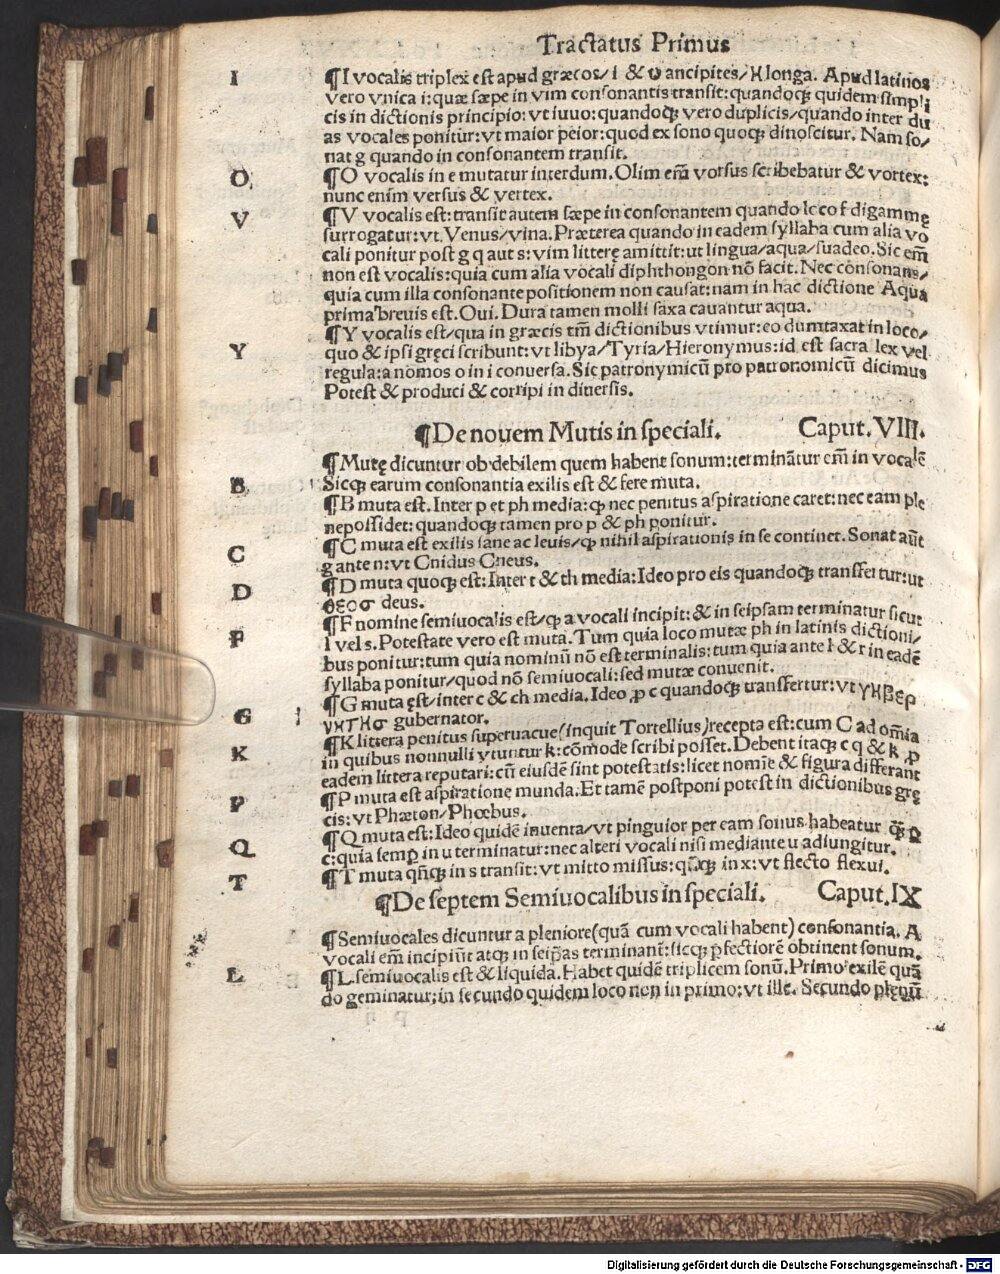 Tractatus Primus
I ¶I vocalis triplex est apud græcos/ι & υ ancipites/H longa. Apud latinos
vero vnica i:quæ sæpe in vim consonantis transit:quandoqȝ quidem simpli
cis in dictionis principio:vt iuuo:quandoqȝ vero duplicis/quando inter du
as vocales ponitur:vt maior peior:quod ex sono quoqȝ dinoscitur. Nam so/
nat g quando in consonantem transit.
O ¶O vocalis in e mutatur interdum. Olim em̄ vorsus scribebatur & vortex:
nunc enim versus & vertex.
V ¶V vocalis est:transit autem sæpe in consonantem quando loco f digammę
surrogatur:vt. Venus/vina. Præterea quando in eadem syllaba cum alia vo
cali ponitur post g q aut s:vim litterę amittit:ut lingua/aqua/suadeo. Sic em̄
non est vocalis:quia cum alia vocali diphthongon nō facit. Nec consonans/
quia cum illa consonante positionem non causat:nam in hac dictione Aqua
prima breuis est. Oui. Dura tamen molli saxa cavantur aqua.
Y ¶Y vocalis est/qua in græcis tm̄ dictionibus vtimur:eo dumtaxat in loco/
quo & ipsi gręci scribunt:vt libya/Tyria/Hieronymus:id est sacra lex vel
regula:a nomos o in i conuersa. Sic patronymicū pro patronomicū dicimus
Potest & produci & corripi in diuersis.
¶De nouem Mutis in speciali. Caput. VIII.
¶Mutę dicuntur ob debilem quem habent sonum:terminātur em̄ in vocalē
Sicqȝ earum consonantia exilis est & fere muta.
B ¶B muta est. Inter p et ph media:ꝙ nec penitus aspiratione caret:nec eam ple
ne possidet:quandoqȝ tamen pro p & ph ponitur.
C ¶C muta est exilis sane ac leuis/ꝙ nihil aspirationis in se continet. Sonat aūt
g ante n:vt Cnidus Cneus.
D ¶D muta quoqȝ est:Inter t & th media:Ideo pro eis quandoqȝ transfertur:ut
θεοσ deus.
F ¶F nomine semiuocalis est/ꝙ a vocali incipit:& in seipsam terminatur sicut
l vel s. Potestate vero est muta. Tum quia loco mutæ ph in latinis dictioni/
bus ponitur:tum quia nominū nō est terminalis:tum quia ante l & r in eadē
syllaba ponitur/quod nō semiuocali:sed mutæ conuenit.
G ¶G muta est/inter c & ch media. Ideo ꝓ c quandoqȝ transfertur:vt γHβερ
γHτHσ gubernator.
K ¶K littera penitus superuacue(inquit Tortellius)recepta est:cum C ad om̄ia
in quibus nonnulli vtuntur k:cōmode scribi posset. Debent itaqȝ c q & k ꝓ
eadem littera reputari:cū eiusdē sint potestatis:licet nomīe & figura differant
P ¶P muta est aspiratione munda. Et tamē postponi potest in dictionibus grę
cis:vt Phæton/Phœbus.
Q ¶Q muta est:Ideo quidē inuenta/vt pinguior per eam sonus habeatur
c:quia semꝑ in u terminatur:nec alteri vocali nisi mediante u adiungitur.
T ¶T muta qn̄qȝ in s transit:vt mitto missus:qn̄qȝ in x:vt flecto flexui.
¶De septem Semiuocalibus in speciali. Caput. IX
¶Semiuocales dicuntur a pleniore(quā cum vocali habent) consonantia. A
vocali em̄ incipiūt atqȝ in seip̄as terminant̄:sicqȝ ꝑfectiorē obtinent sonum.
L ¶L semiuocalis est & liquida. Habet quidē triplicem sonū. Primo exilē quā
do geminatur:in secundo quidem loco non in primo:vt ille. Secundo plenū
Digitalisierung gefördert durch die Deutsche Forschungsgemeinschaft - DFG